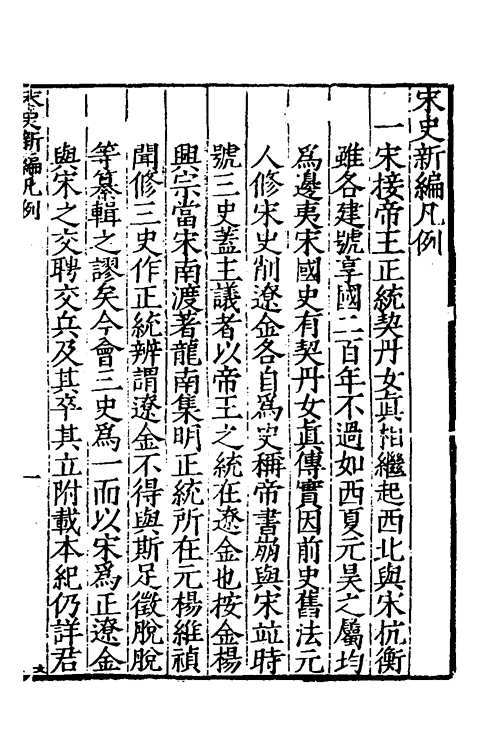 宋史新編凡例
一宋接帝王正統契丹女真相繼起西北與宋抗衡
雖各建號享國二百年不過如西夏元昊之屬均
爲邊夷宋國史有契丹女真傳實因前史舊法元
人修宋史削遼金各自爲史稱帝書崩與宋竝時
號三史蓋主議者以帝王之統在遼金也按金楊
興宗當宋南渡著龍南集明正統所在元楊維禎
聞修三史作正統辨謂遼金不得與斯足徵脫脫
等纂輯之謬矣今會三史爲一而以宋爲正遼金
與宋之交聘交兵及其卒其立附載本紀仍詳君
宋史新編凡例
一